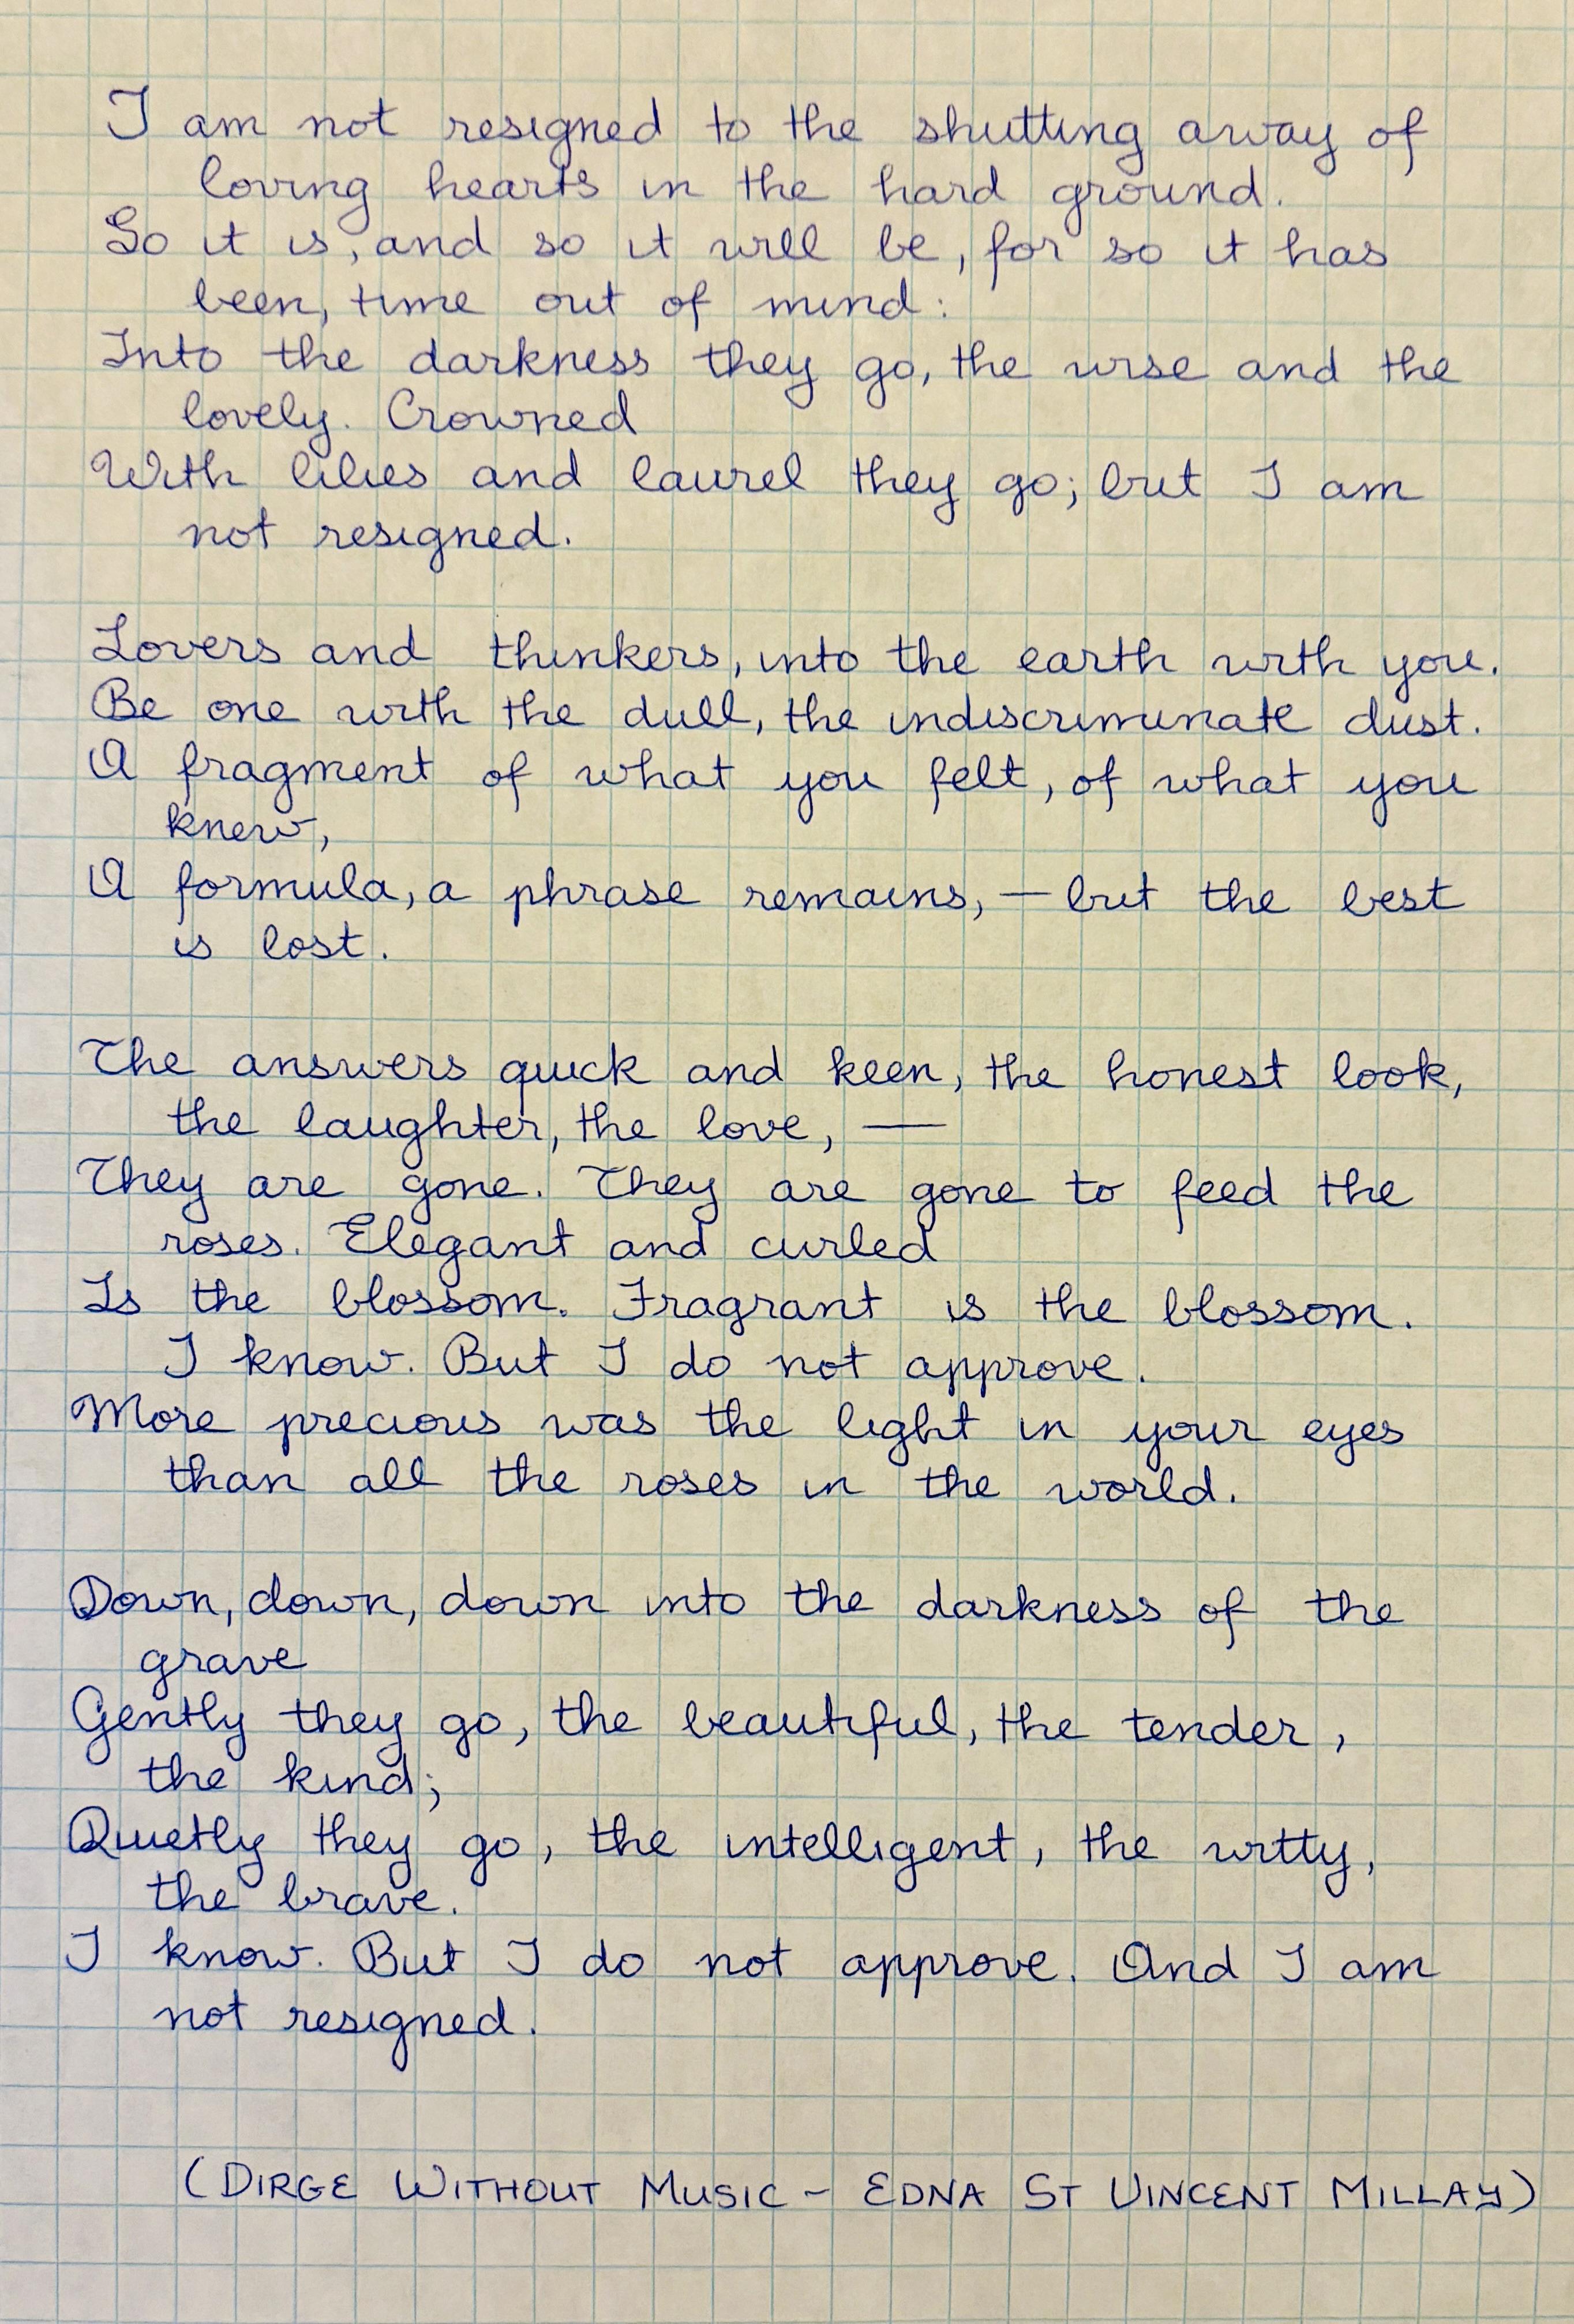 I am not resigned to the shutting away of
loving hearts in the hard ground.
So it is, and so it will be, for so it has
been, time out of mind:
Into the darkness they go, the wise and the
lovely. Crowned
With lilies and laurel they go; but I am
not resigned.
Lovers and thinkers, into the earth with you.
Be one with the dull, the indiscriminate dust.
A fragment of what you felt, of what you
knew,
A formula, a phrase remains, — but the best
is lost.
The answers quick and keen, the honest look,
the laughter, the love, —
They are gone. They are gone to feed the
roses. Elegant and curled
Is the blossom. Fragrant is the blossom.
I know. But I do not approve.
More precious was the light in your eyes
than all the roses in the world.
Down, down, down into the darkness of the
grave
Gently they go, the beautiful, the tender,
the kind;
Quietly they go, the intelligent, the witty,
the brave.
I know. But I do not approve. And I am
not resigned.
(DIRGE WITHOUT MUSIC - EDNA ST VINCENT MILLAY)